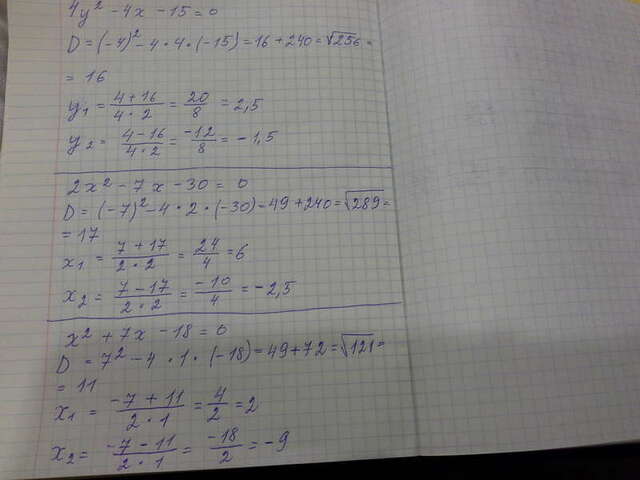 4y² - 4x - 15 = 0
D = (-4)² - 4 · 4 · (-15) = 16 + 240 = √256 =
= 16
y₁ = (4 + 16)/(4 · 2) = 20/8 = 2,5
y₂ = (4 - 16)/(4 · 2) = -12/8 = -1,5
2x² - 7x - 30 = 0
D = (-7)² - 4 · 2 · (-30) - 49 + 240 = √289 =
= 17
x₁ = (7 + 17)/(2 · 2) = 24/4 = 6
x₂ = (7 - 17)/(2 · 2) = -10/4 = -2,5
x² + 7x - 18 = 0
D = 7² - 4 · 1 · (-18) = 49 + 72 = √121 =
= 11
x₁ = (-7 + 11)/(2 · 1) = 4/2 = 2
x₂ = (-7 - 11)/(2 · 1) = -18/2 = -9